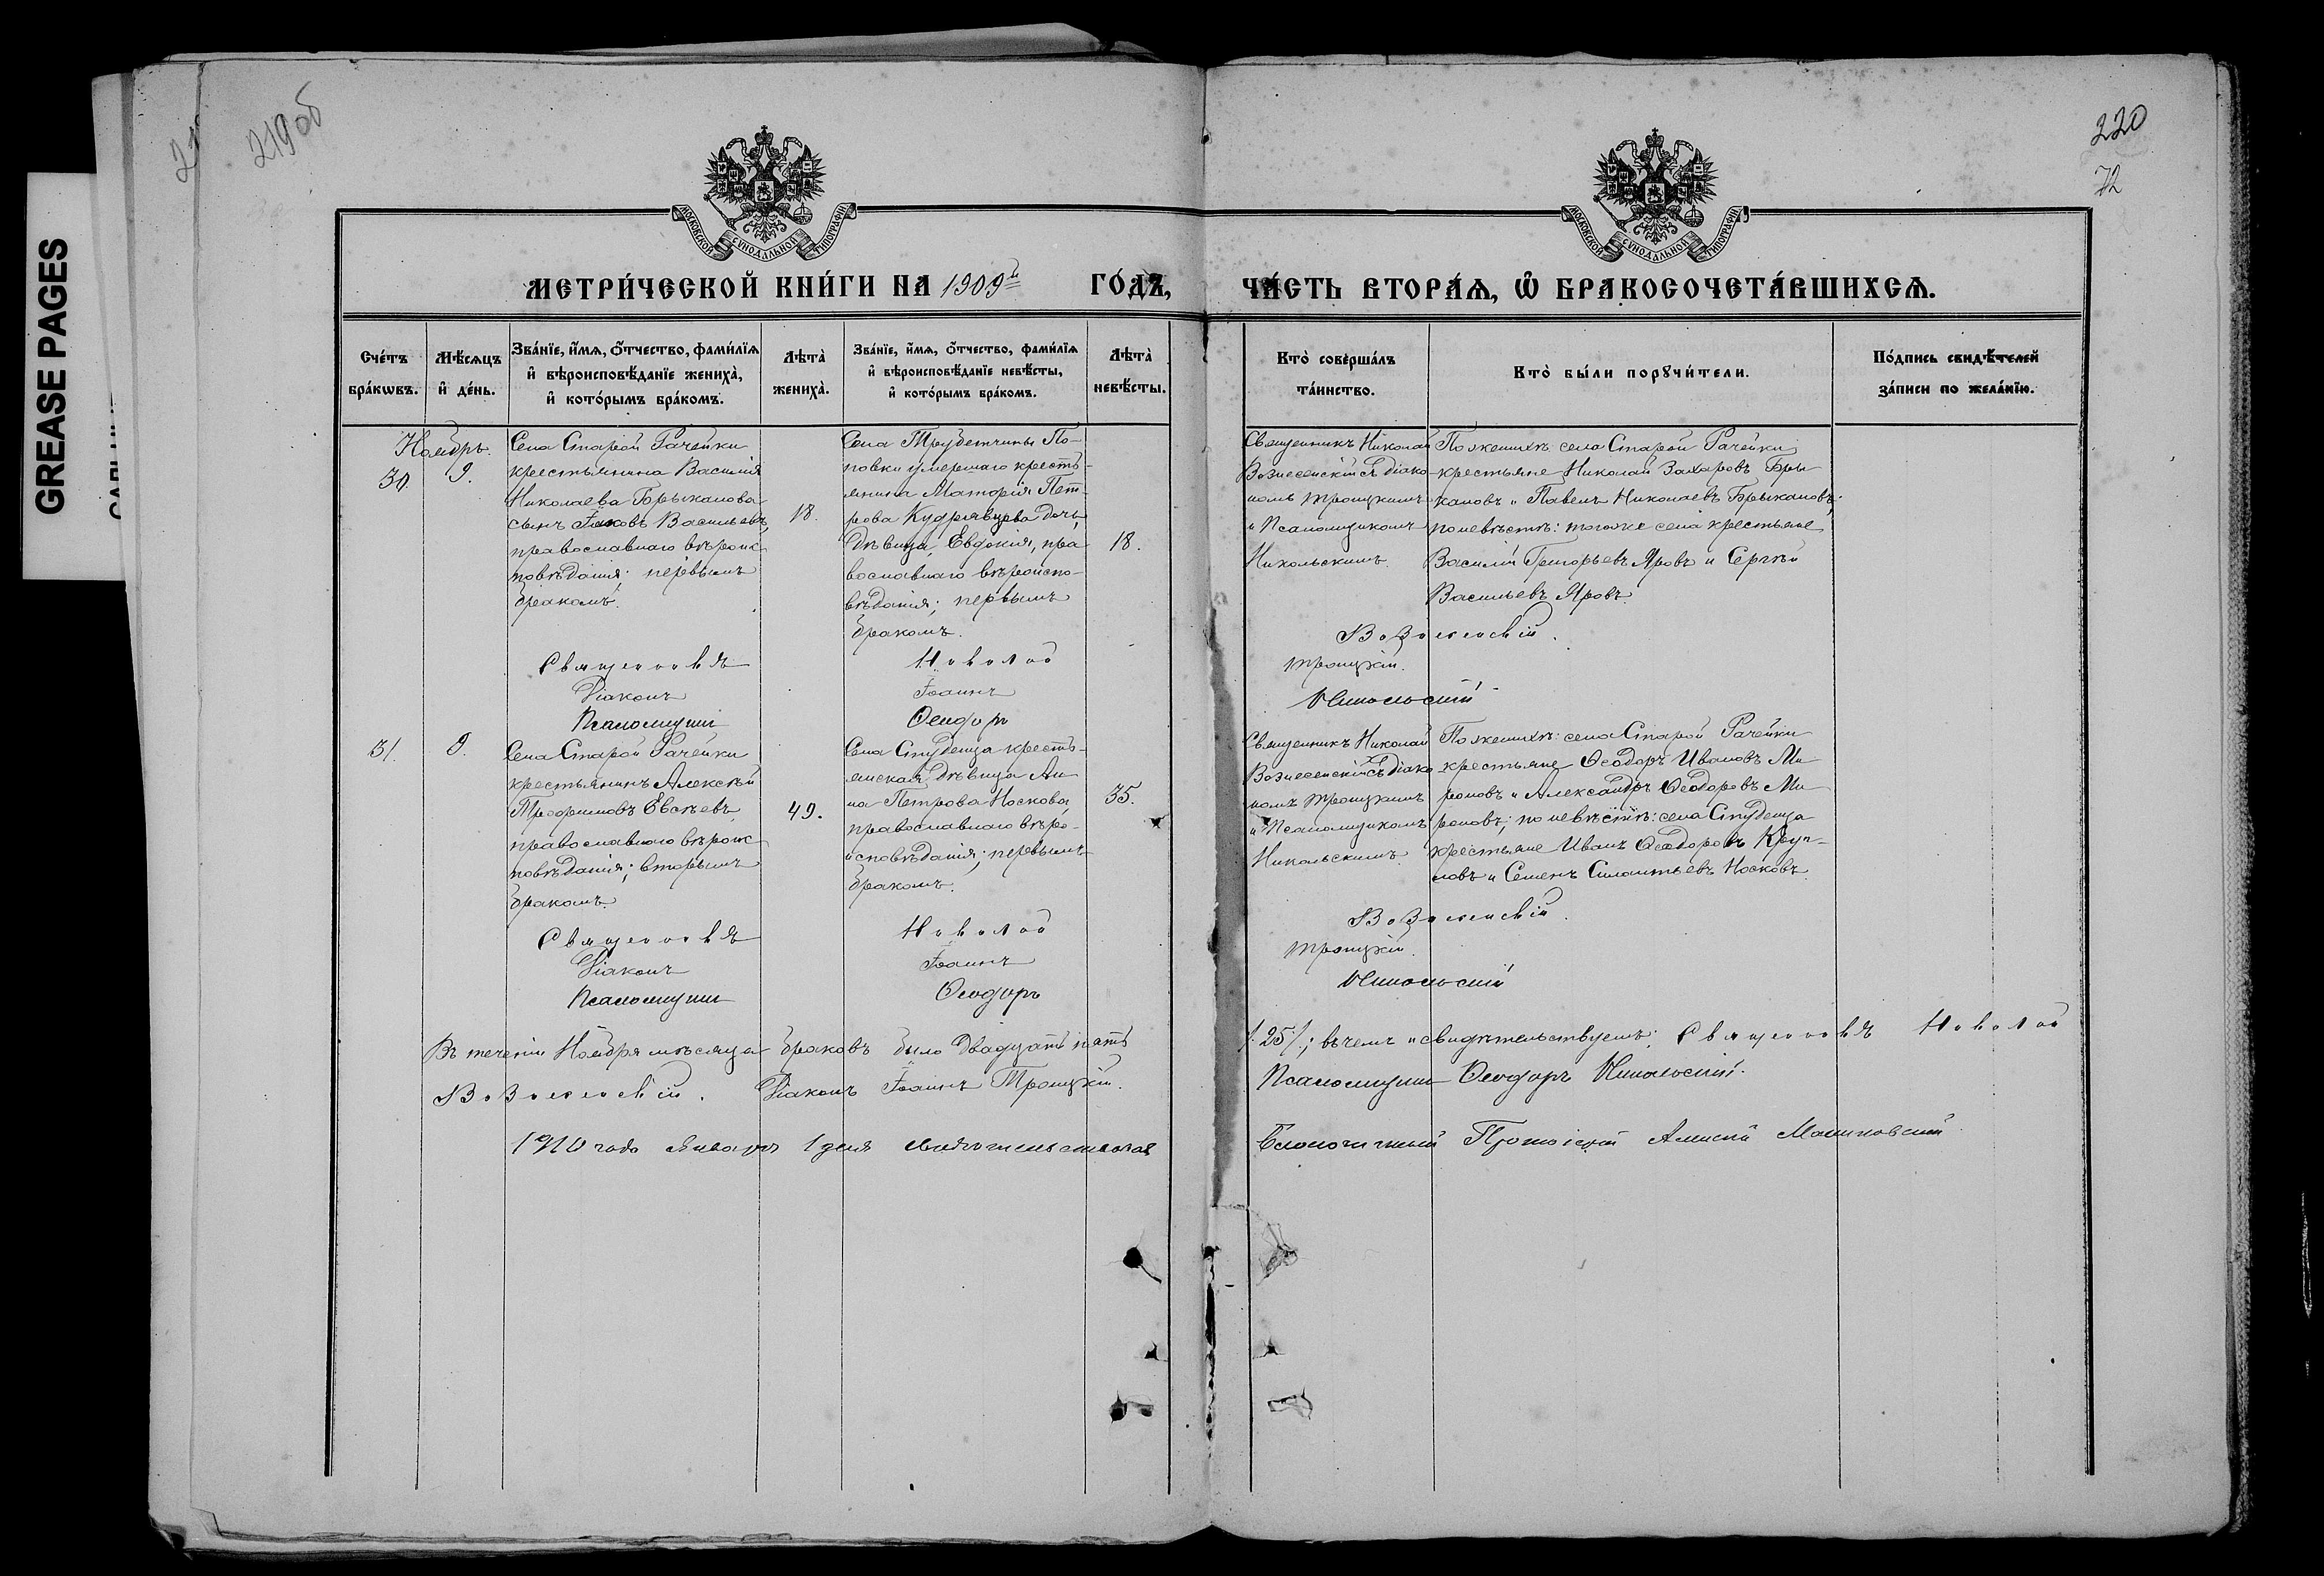 GREASE PAGES
219об
220
72
МОСКОВСКОЙ СѴНОДАЛЬНОЙ ТИПОГРАФІИ
МОСКОВСКОЙ СѴНОДАЛЬНОЙ ТИПОГРАФІИ
МЕТРИ́ЧЕСКОЙ КНИ́ГИ НА 1909й ГО́ДЪ,
ЧА́СТЬ ВТОРА́Я, Ѡ҆ БРАКОСОЧЕТА́ВШИХСЯ.
Сче́тъ бра́кѡвъ.
Мѣ́сяцъ и҆ де́нь.
Зва́нїе, и҆́мя, ѻ҆́тчество, фами́лїя
и҆ вѣроисповѣ́данїе жениха̀,
и҆ кото́рымъ бра́комъ.
Лѣта̀ жениха̀.
Зва́нїе, и҆́мя, ѻ҆́тчество, фами́лїя
и҆ вѣроисповѣ́данїе невѣ́сты,
и҆ кото́рымъ бра́комъ.
Лѣта̀ невѣ́сты.
Кто̀ соверша́лъ
та́инство.
Кто̀ бы́ли порꙋчи́тели.
По́дпись свидѣ́телей
за́писи по жела́нїю.
Ноябрь.
30.
9.
Села Старой Рачейки
крестьянина Василія
Николаева Брыканова
сынъ Іаковъ Васильевъ,
православнаго вѣроис
повѣданія; первымъ
бракомъ.
18.
Села Трубетчины По-
повки умершаго кресть-
янина Матѳія Пет-
рова Кудрявцева дочь
дѣвица, Евдокія, пра
вославнаго вѣроиспо-
вѣданія; первымъ
бракомъ.
18.
Священникъ Николай
Вознесенскій съ діако-
номъ Троицкимъ
и Псаломщикомъ
Никольскимъ.
По женихѣ: села Старой Рачейки
крестьяне Николай Захаровъ Бры
кановъ и Павелъ Николаевъ Брыкановъ;
по невѣстѣ: того же села крестьяне
Василій Григорьевъ Яровъ и Сергѣй
Васильевъ Яровъ.
Священникъ Николай Вознесенскій.
Діаконъ Іоаннъ Троицкій.
Псаломщикъ Ѳеодоръ Никольскій
31.
9.
Села Старой Рачейки
крестьянинъ Алексѣй
Трофимовъ Евсѣевъ,
православнаго вѣроис
повѣданія; вторымъ
бракомъ.
49.
Села Студенца кресть-
янская дѣвица Ан
на Петрова Носкова,
православнаго вѣро-
исповѣданія; первымъ
бракомъ.
35.
Священникъ Николай
Вознесенскій съ діако
номъ Троицкимъ
и Псаломщикомъ
Никольскимъ.
По женихѣ: села Старой Рачейки
крестьяне Ѳеодоръ Ивановъ Ми
роновъ и Александръ Ѳеодоровъ Ми
роновъ; по невѣстѣ: села Студенца
крестьяне Иванъ Ѳеодоровъ Круг-
ловъ и Семенъ Силантьевъ Носковъ.
Священникъ Николай Вознесенскій.
Діаконъ Іоаннъ Троицкій.
Псаломщикъ Ѳеодоръ Никольскій
Въ теченіи Ноября мѣсяца браковъ было двадцать пять /. 25 ./; въ чемъ и свидѣтельствуемъ: Священникъ Николай
Вознесенскій. Діаконъ Іоаннъ Троицкій. Псаломщикъ Ѳеодоръ Никольскій.
1910 года Января 1 дня свидѣтельствовалъ Благочинный Протоіерей Алексій